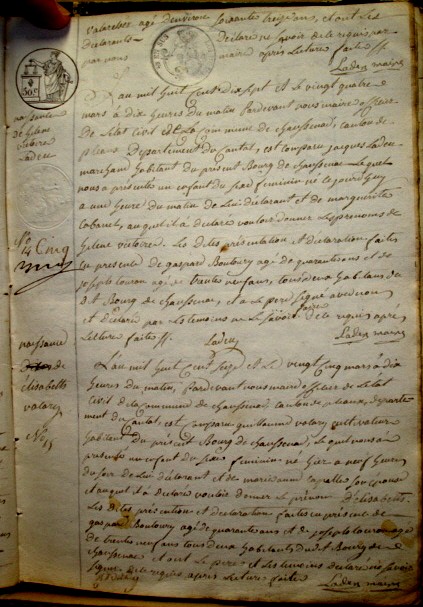 agé d'environ soixante treize ans, et ont les
declarants déclaré ne savoir de ce requis par
par nous maire après lecture faite ff.
Ladeu maire
50c
naissance
de helene
victoire
Ladeu
No 14 Cinq
L'an mil huit cent dix sept et le vingt quatre
mars à dix heures du matin Pardevant nous maire officier
de l'état civil de la commune de chaussenac, canton de
pleaux Département du Cantal, est comparu jacques Ladeu
marchand habitant du présent Bourg de chaussenac lequel
nous a présenté un enfant du sexe feminin né le jourd'huy
a une heure du matin de lui déclarant et de marguerite
Cabanet, auquel il à déclaré vouloir donner les prenoms de
helene victoire. Les dites présentation et déclaration faites
en presence de gaspard Bouloury agé de quarante ans et de
joseph agé de trente neuf ans, tous deux habitants du
dit Bourg de chaussenac, et a le pere signé avec nous
et déclaré par les temoins ne le savoir de ce requis après
Lecture faite ff. Ladeu Ladeu maire
naissance
de
elisabeth
valery
No 15
L'an mil huit cent dix sept et le vingt cinq mars à dix
heures du matin, Pardevant nous maire officier de l'état
civil de la commune de chaussenac, canton de pleaux, departe
ment du Cantal, est comparu valery cultivateur
habitant du présent Bourg de chaussenac, lequel nous a
presenté un enfant du sexe feminin né hier a neuf heures
du soir de lui déclarant et de marie anne capelle son epouse
et auquel il à déclaré vouloir donner le prénom d'élisabeth.
Les dites présentation et déclaration faites en présence de
gaspard Bouloury agé de quarante ans et de joseph agé
de trente neuf ans tous deux habitants dudit Bourg de
chaussenac et ont le pere et les temoins declaré ne savoir
signer de ce requis après lecture faite Ladeu maire